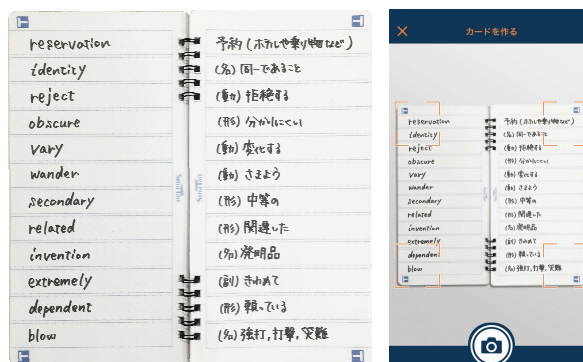 reservation
identity
reject
obscure
vary
wander
secondary
related
invention
extremely
dependent
blow
予約 (ホテルや乗り物など)
(名) 同一であること
(動) 拒絶する
(形) 分かりにくい
(動) 変化する
(動) さまよう
(形) 中等の
(形) 関連した
(名) 発明品
(副) きわめて
(形) 頼っている
(名) 強打, 打撃, 災難
カードを作る
reservation
identity
reject
obscure
vary
wander
secondary
related
invention
extremely
dependent
blow
予約 (ホテルや乗り物など)
(名) 同一であること
(動) 拒絶する
(形) 分かりにくい
(動) 変化する
(動) さまよう
(形) 中等の
(形) 関連した
(名) 発明品
(副) きわめて
(形) 頼っている
(名) 強打, 打撃, 災難